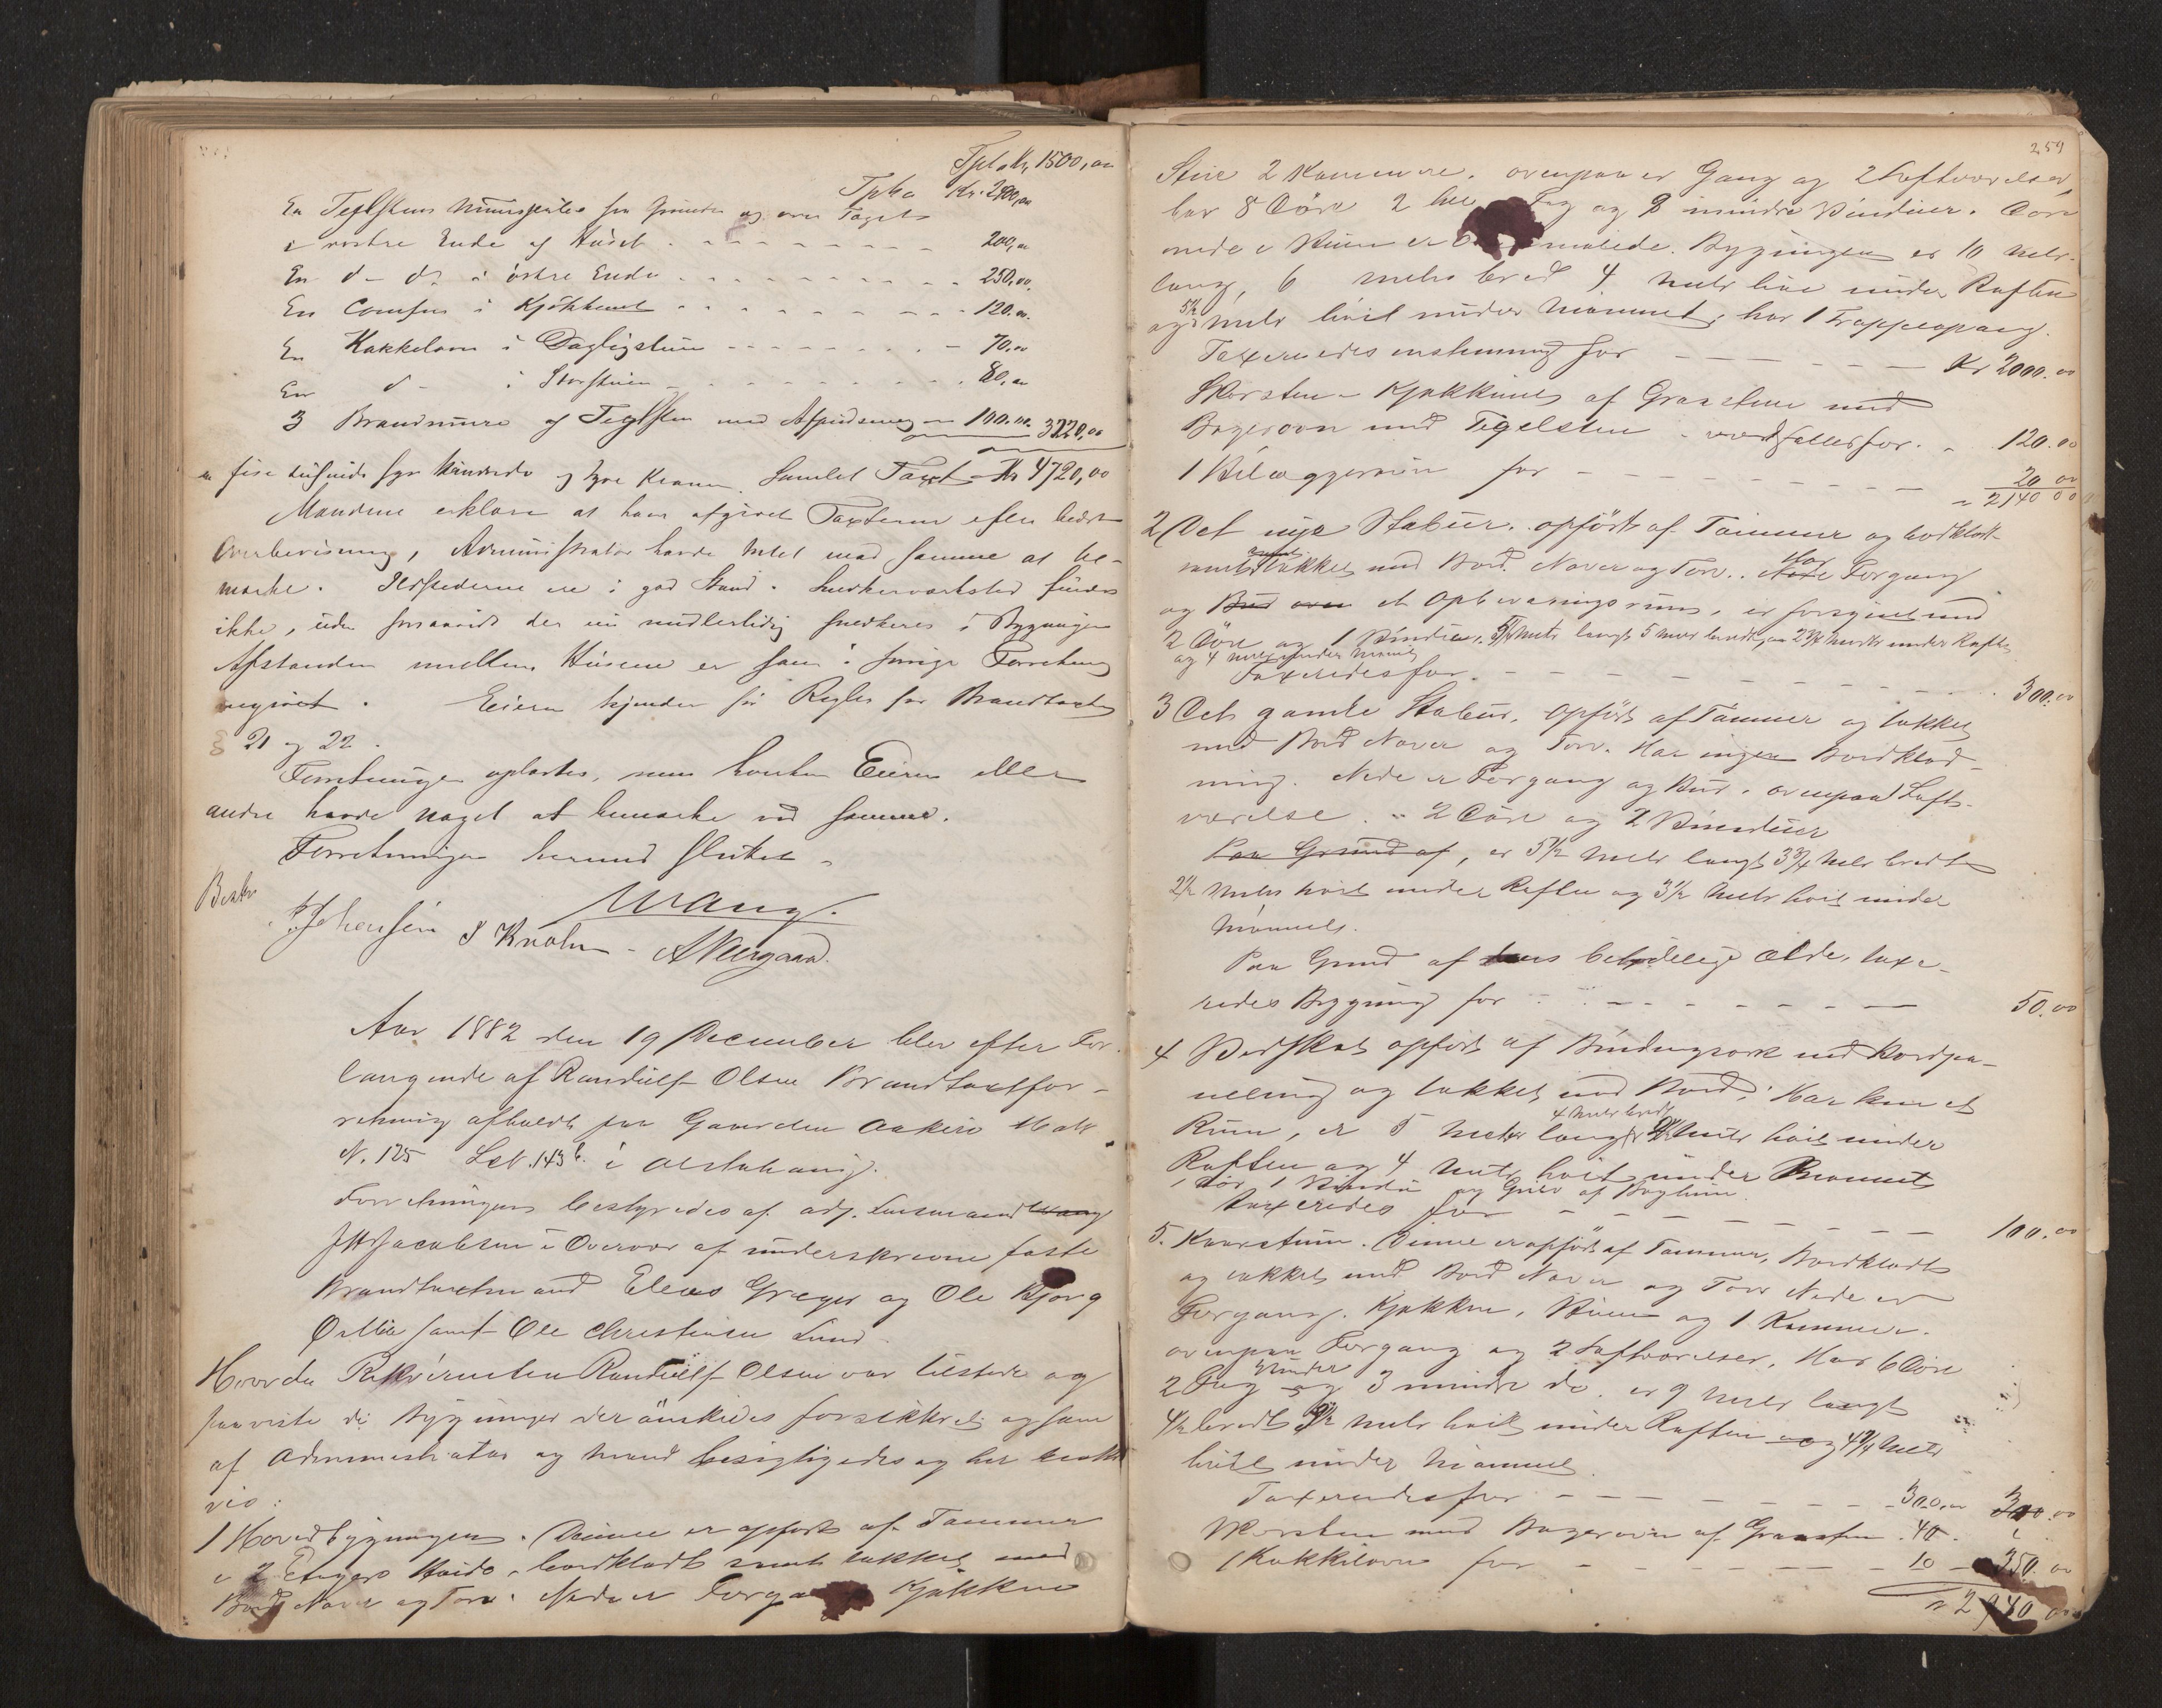 Kr. 1500,00
Kr. 2400,00
En Teglstens fra Grunden og over Taget
i vestre Ende af Huset 200,00
En d- do i østre Ende 250,00
En Comfur i Kjøkkenet 120,00
En Kakkelovn i Dagligstuen 70,00
En d- i Storstuen 80,00
3 Brandmure af Teglsten med Afpudsning 100,00 3220,00
fire tusinde syv hundrede og tyve Kroner. Samlet Taxt Kr 4720,00
Mændene erklære at have afgivet Taxterne efter bedste
Overbevisning, Administrator havde Intet mod samme at be-
mærke. Ildstederne ere i god Stand. Snedkerværksted findes
ikke, uden forsaavidt der nu midlertidig snedkeres i Bygningen
Afstanden mellem Husene er som i forrige Forretning
angivet. Eieren kjender sin Regler for Brandtaxter
§ 21 og 22.
Forretningen oplæstes, men hverken Eieren eller
andre havde noget at bemærke ved samme.
Forretningen hermed sluttet
Wang
Johansen
Aar 1882 den 19 December blev efter For-
langende af Randulf Olsen Brandtaxtfor-
retning afholdt paa Gaarden Matr
N. 125 Løb. 143 b. i
Forretningen bestyredes af adj. Lensmand Wang
Jacobsen i Overvær af underskrevne faste
Brandtaxtmænd Eleas og Ole
samt Ole Christensen Lund.
Hvorda Rekvirenten Randulf Olsen var tilstede og
paaviste de Bygninger der ønskedes forsikkret og som
af Administrator og Mænd besigtigedes og her
vis:
1 Hovedbygningen. Denne er opført af Tømmer
i 2 Etagers Høide, bordklædt samt tækket med
Bord Næver og Torv. Nede er Forgang Kjøkken
259
Stue 2 Kammere. ovenpaa er Gang og 2 Loftsværelser
har 8 Døre 2 Fag og 8 mindre Vinduer.
nede i Stuen er malede. Bygningen er 10 Meter
lang, 6 Meter bred 4 Meter høi under Raften
og 5½ Meter høit under Mønnet, har 1 Trappeopgang.
Taxeredes enstemmig for Kr 2000.00
Skorsten i Kjøkkenet af Graasten med
Bagerovn med Tegelsten værdsattes for 120.00
1 Bilæggerovn for 20 00
2140 00
2 Det nye Stabur. opført af Tømmer og bordklædt
samt tækket med Bord. Næver og Torv. Har Forgang
og Bud et Opbevaringsrum, er forsynet med
2 Døre og 1 Vindue, 5½ Meter langt 5 Meter bredt, 2¾ Meter under Raften
og 4 Meter under Mønnet
Taxeredes for 300.00
3 Det gamle Stabur. opført af Tømmer og tækket
med Bord Næver og Torv. Har ingen Bordklæd-
ning. Nede er Forgang og Bur. ovenpaa Lofts-
værelse. 2 Døre og 2 Vinduer
Paa Grund af, er 5½ Meter langt 3¾ Meter bredt
2½ Meter høit under Raften og 3½ Meter høit under
Mønnet.
Paa Grund af dens betydelige Ælde, taxe-
redes Bygning for 50.00
4 Vedskot opført af Bindingsværk med Bordpa-
neling og tækket med Bord; Har kun et
Rum, er 5 Meter langt 4 Meter bredt Meter høit under
Raften og 4 Meter høit under Mønnet
1 Dør 1 Vindue og
taxeredes for 100.00
5. Kaarstuen. Denne er opført af Tømmer, Bordklædt
og tækket med Bord Næver og Torv Nede er
Forgang, Kjøkken, Stuen og 1 Kammer.
ovenpaa Forgang og 2 Loftsværelser. Har 6 Døre
2 Fag Vinduer og 3 mindre do. er 9 Meter langt
4½ bredt 3½ Meter høit under Raften og 4¾ Meter
høit under Mønnet.
Taxeredes for 300.00 300.00
Skorsten med Bagerovn af Graasten 40.
1 Kakkelovn for 10 350.00
2940 00